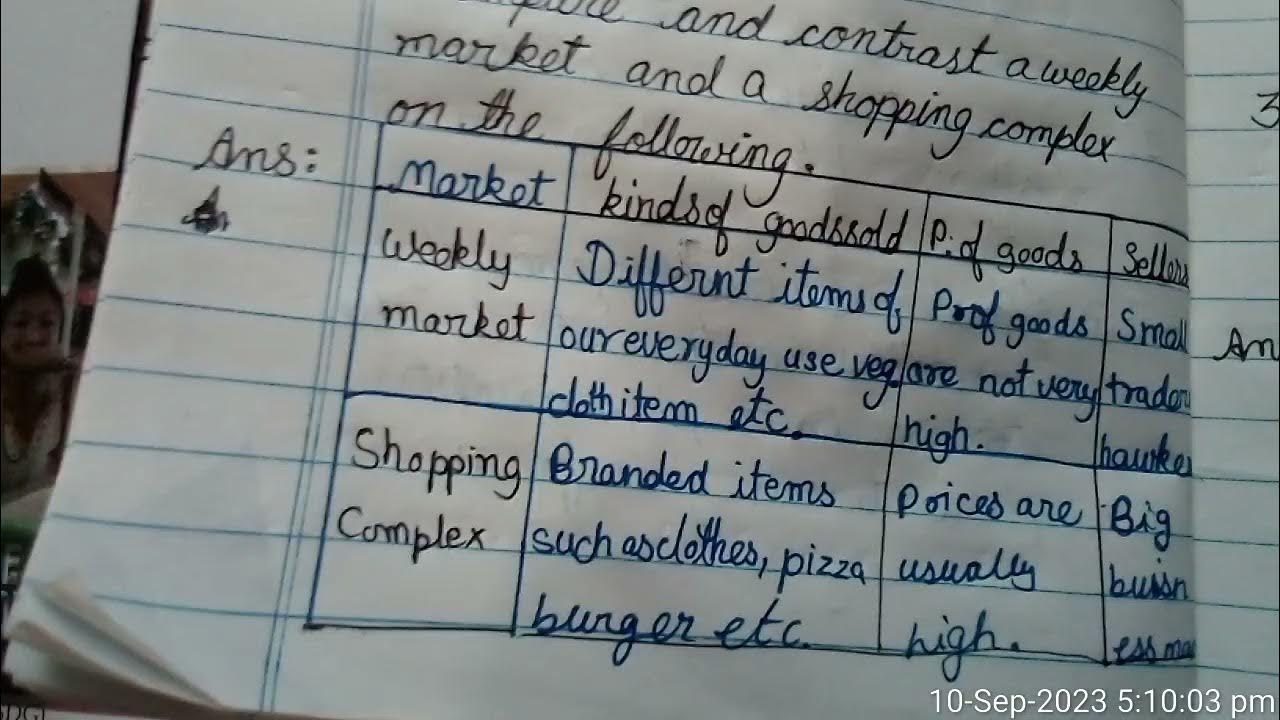 and contrast a weekly
market and a shopping complex
on the following.
Ans:
Market
kinds of goods sold
P. of goods
Sellers
Weekly
market
Differnt items of
our everyday use veg
cloth item etc.
P. of goods
are not very
high.
Small
trader
hawker
Shopping
Complex
Branded items
such as clothes, pizza
burger etc.
Prices are
usually
high.
Big
buisn
ess ma
3
An
10-Sep-2023 5:10:03 pm